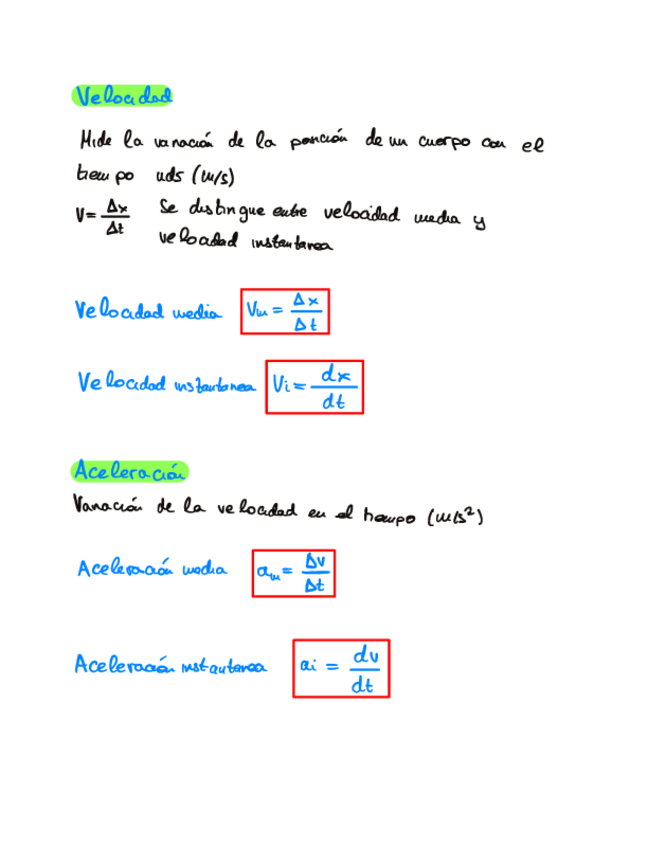 Velocidad
Mide la variación de la posición de un cuerpo con el
tiempo uds (m/s)
V = Δx/Δt Se distingue entre velocidad media y
velocidad instantanea
Velocidad media Vm = Δx/Δt
Velocidad instantanea Vi = dx/dt
Aceleración
Variación de la velocidad en el tiempo (m/s²)
Aceleración media am = Δv/Δt
Aceleración instantanea ai = dv/dt